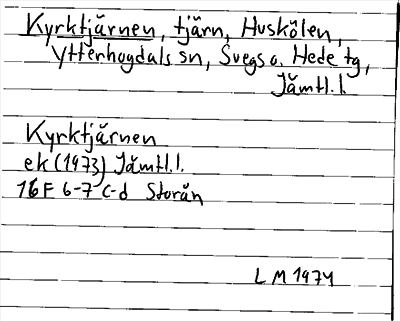 Kyrktjärnen, tjärn, Huskölen,
Ytterhogdals sn, Svegs o. Hede tg,
Jämtl.l.
Kyrktjärnen
ek (1973) Jämtl.l.
16F 6-7 c-d Storån
LM 1974